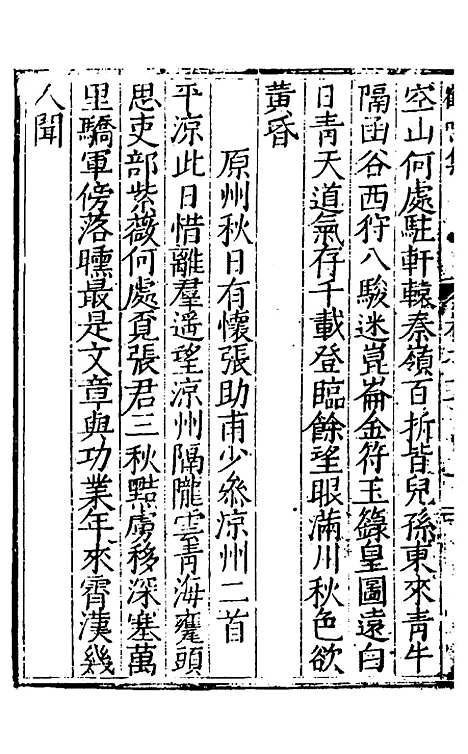 空山何處駐軒轅秦嶺百折皆兒孫東來青牛
隔函谷西狩八駿迷崑崙金符玉籙皇圖遠白
日青天道氣存千載登臨餘望眼滿川秋色欲
黃昏
原州秋日有懷張助甫少叅凉州二首
平凉此日惜離羣遥望凉州隔隴雲青海戞頭
思吏部紫薇何處覔張君三秋黠虜移深塞萬
里驕軍傍落曛最是文章與功業年來霄漢幾
人聞